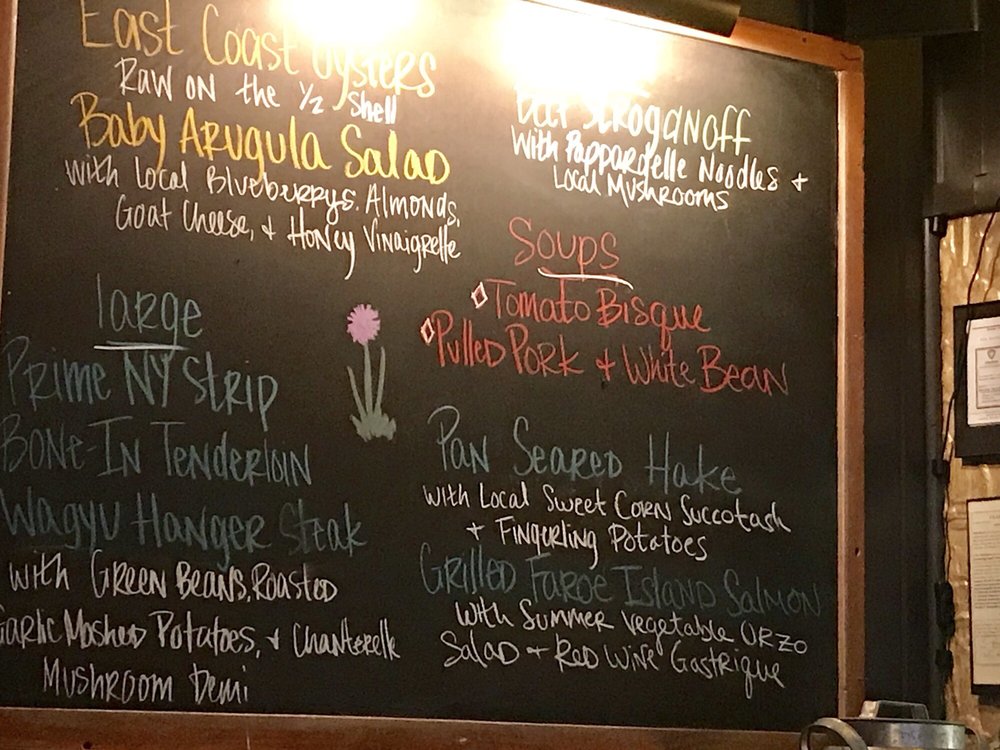 East Coast Oysters
Raw on the 1/2 Shell
Baby Arugula Salad
with Local Blueberrys, Almonds,
Goat Cheese, + Honey Vinaigrette
large
Prime NY Strip
Bone-In Tenderloin
Wagyu Hanger Steak
with Green Beans, Roasted
Garlic Mashed Potatoes, + Chanterelle
Mushroom Demi
Beef Stroganoff
With Pappardelle Noodles +
Local Mushrooms
Soups
Tomato Bisque
Pulled Pork + White Bean
Pan Seared Hake
with Local Sweet Corn Succotash
+ Fingerling Potatoes
Grilled Faroe Island Salmon
with Summer Vegetable Orzo
Salad + Red Wine Gastrique